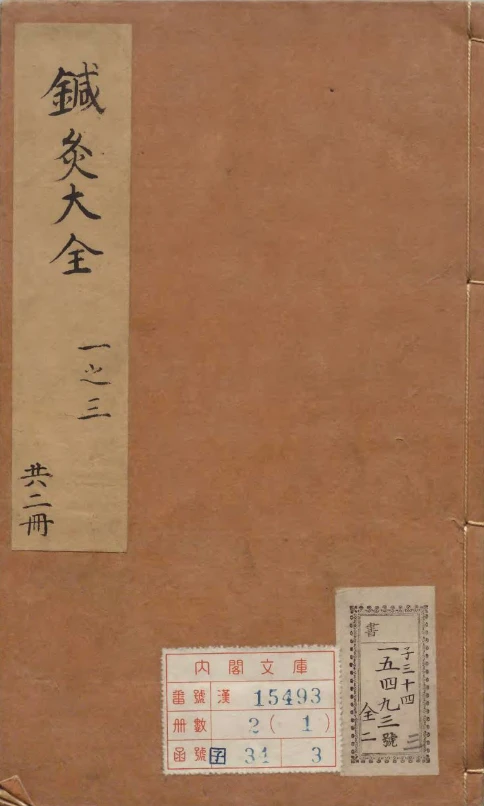 鍼灸大全
一之三
共二冊
内閣文庫
番號 漢 15493
冊數 2(1)
函號 子 31 3
書
子三十四
一五四九三號
全二
三